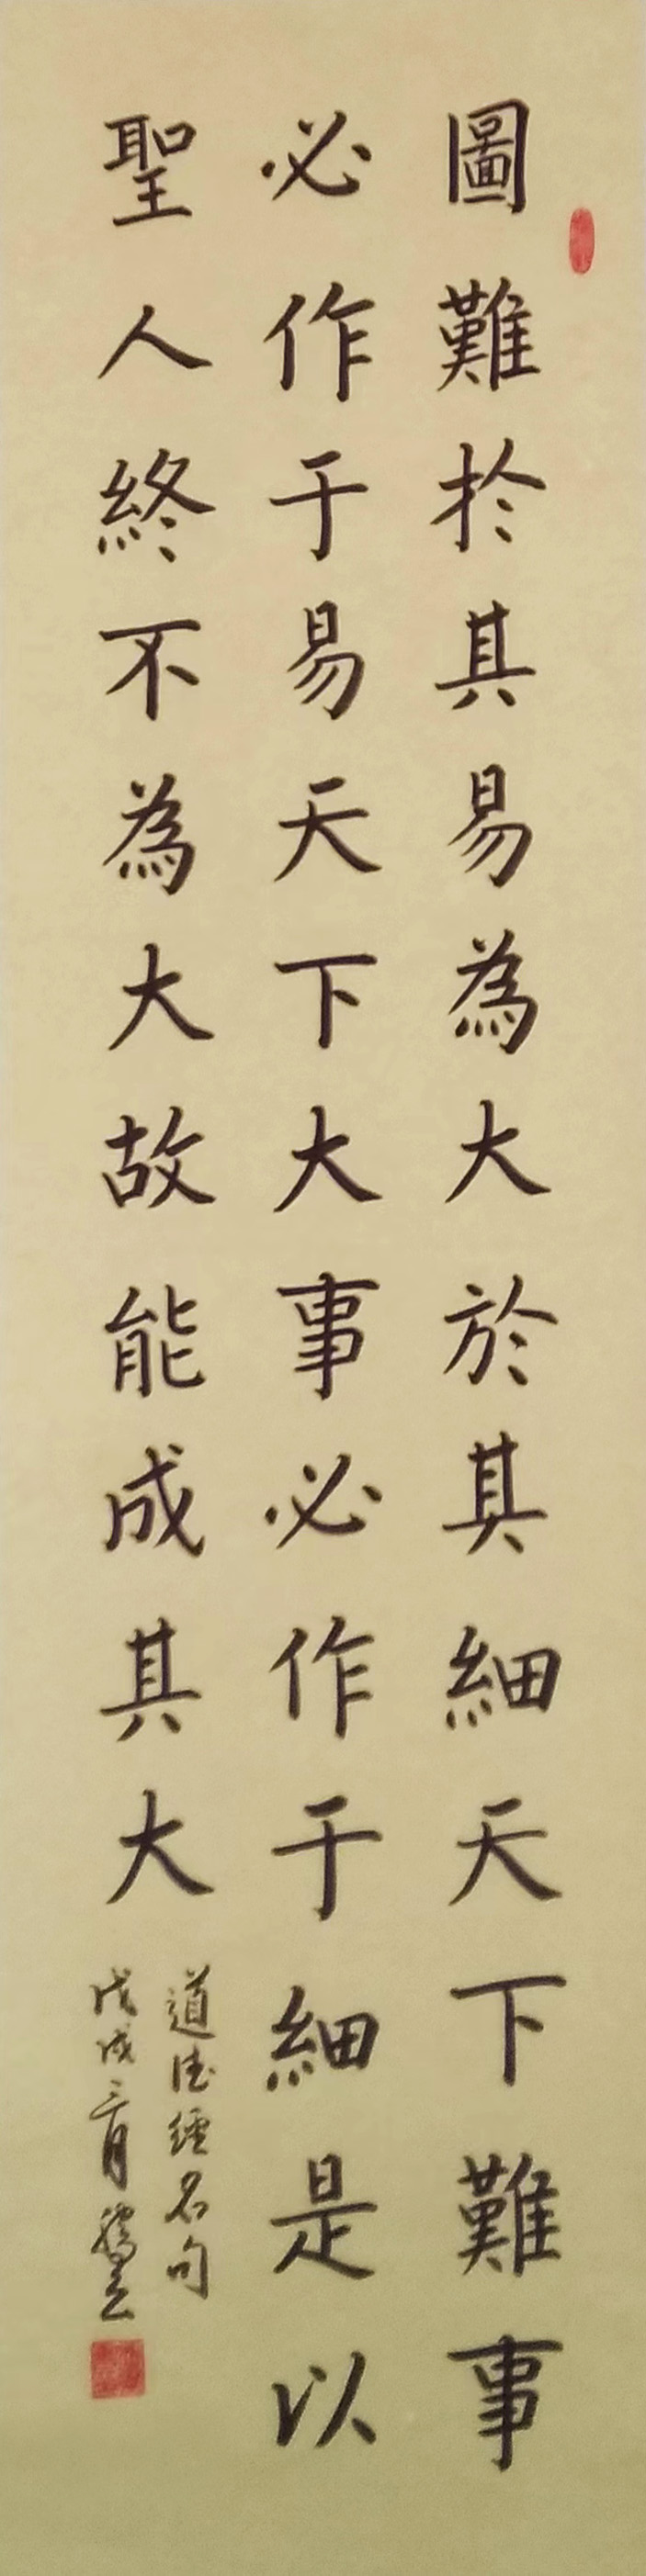 圖難於其易為大於其細天下難事
必作于易天下大事必作于細是以
聖人終不為大故能成其大
道德經名句
戊戌三月